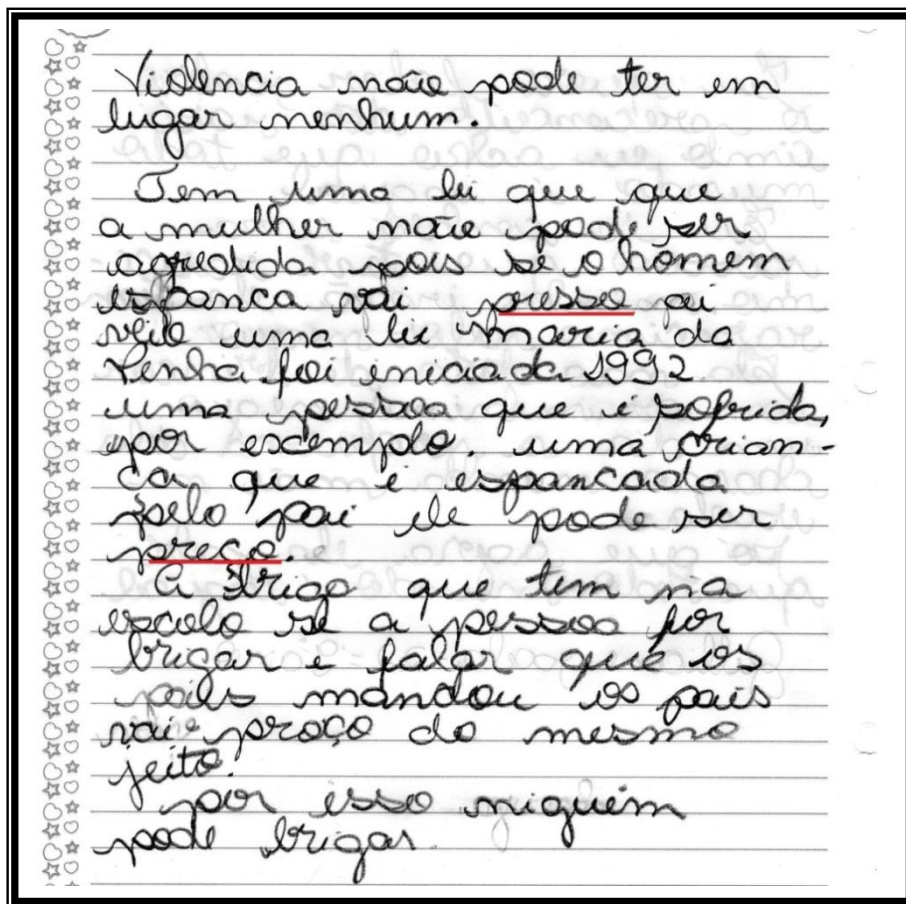 Violencia não pode ter em
lugar nenhum.
Tem uma lei que que
a mulher não pode ser
agredida pois se o homem
espanca vai presso ai
veio uma lei maria da
Penha foi iniciada 1992
uma pessoa que é sofrida,
por exemplo. uma crian-
ca que é espancada
pelo pai ele pode ser
preco.
A Briga que tem na
escola se a pessoa for
brigar e falar que os
pais mandou os pais
vai proço do mesmo
jeito.
por isso niguém
pode brigar.